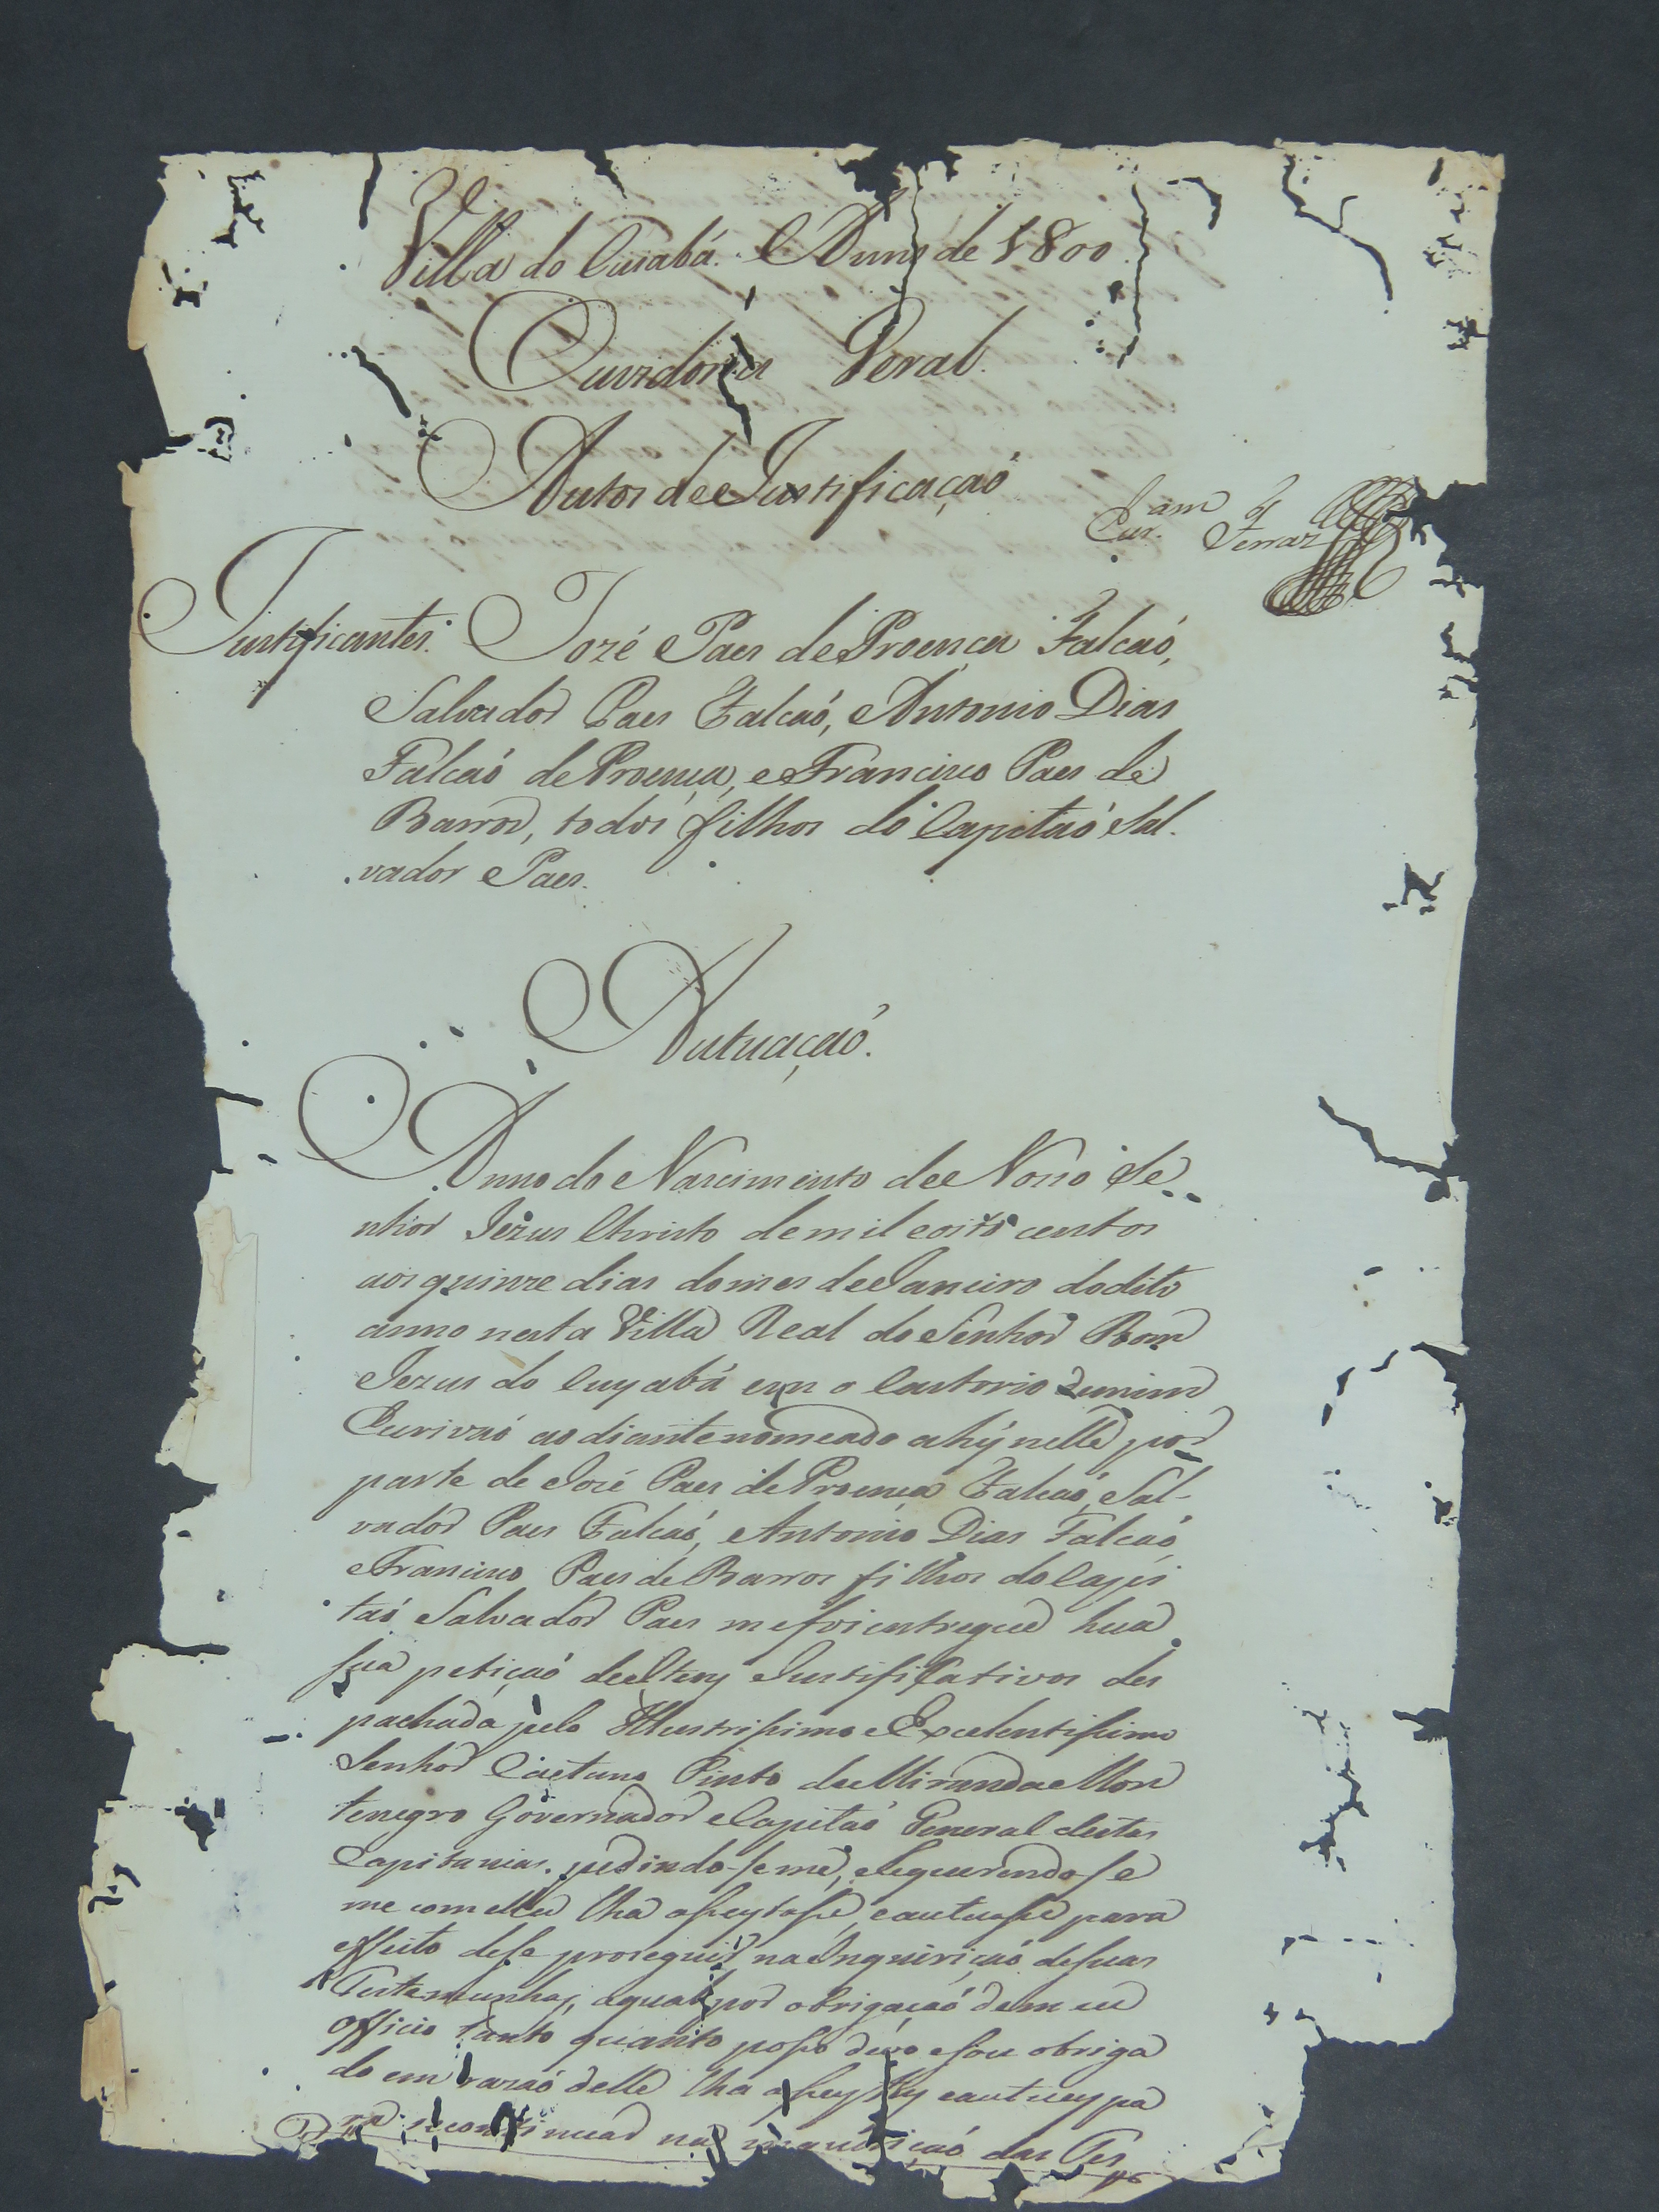 Villa do Cuiabá. Anno de 1800.
Ouvidoria Geral.
Autos de Justificaçaó
Escr. Ferraz
Justificantes. Jozé Paes de Proença Falcaó,
Salvador Paes Falcaó, Antonio Dias
Falcaó de Proença, e Francisco Paes de
Barros, todos filhos do Capitaó Sal-
vador Paes.
Autuaçaó.
Anno do Nascimento de Nosso Se
nhor Jezus Christo de mil eoito centos
aos quinze dias domes de Janeiro dodito
anno nesta Villa Real do Senhor Bom
Jezus do Cuyabá em o Cartorio demim
Escrivaó ao diante nomeado ahy nelle por
parte de José Paes de Proença Falcaó, Sal-
vador Paes Falcaó, Antonio Dias Falcaó,
e Francisco Paes de Barros filhos do Capi
taó Salvador Paes mefoi entregue hua
sua petiçaó de Itens Justificativos des
pachada pelo Illustrissimo e Excelentissimo
Senhor Caetano Pinto de Miranda Mon
tenegro Governador e Capitaó General destas
Capitanias. pedindo-se me, e Requerendo-se
me com ella lha aseytase, eautuase para
effeito dese proseguir na Inquiriçaó desuas
Testemunhas, aqual por obrigaçaó demeu
officio tanto quanto poso devo esou obriga
do em razaó delle lha aseytey eautuey pa
ra secontinuar na inquiriçaó das Tes